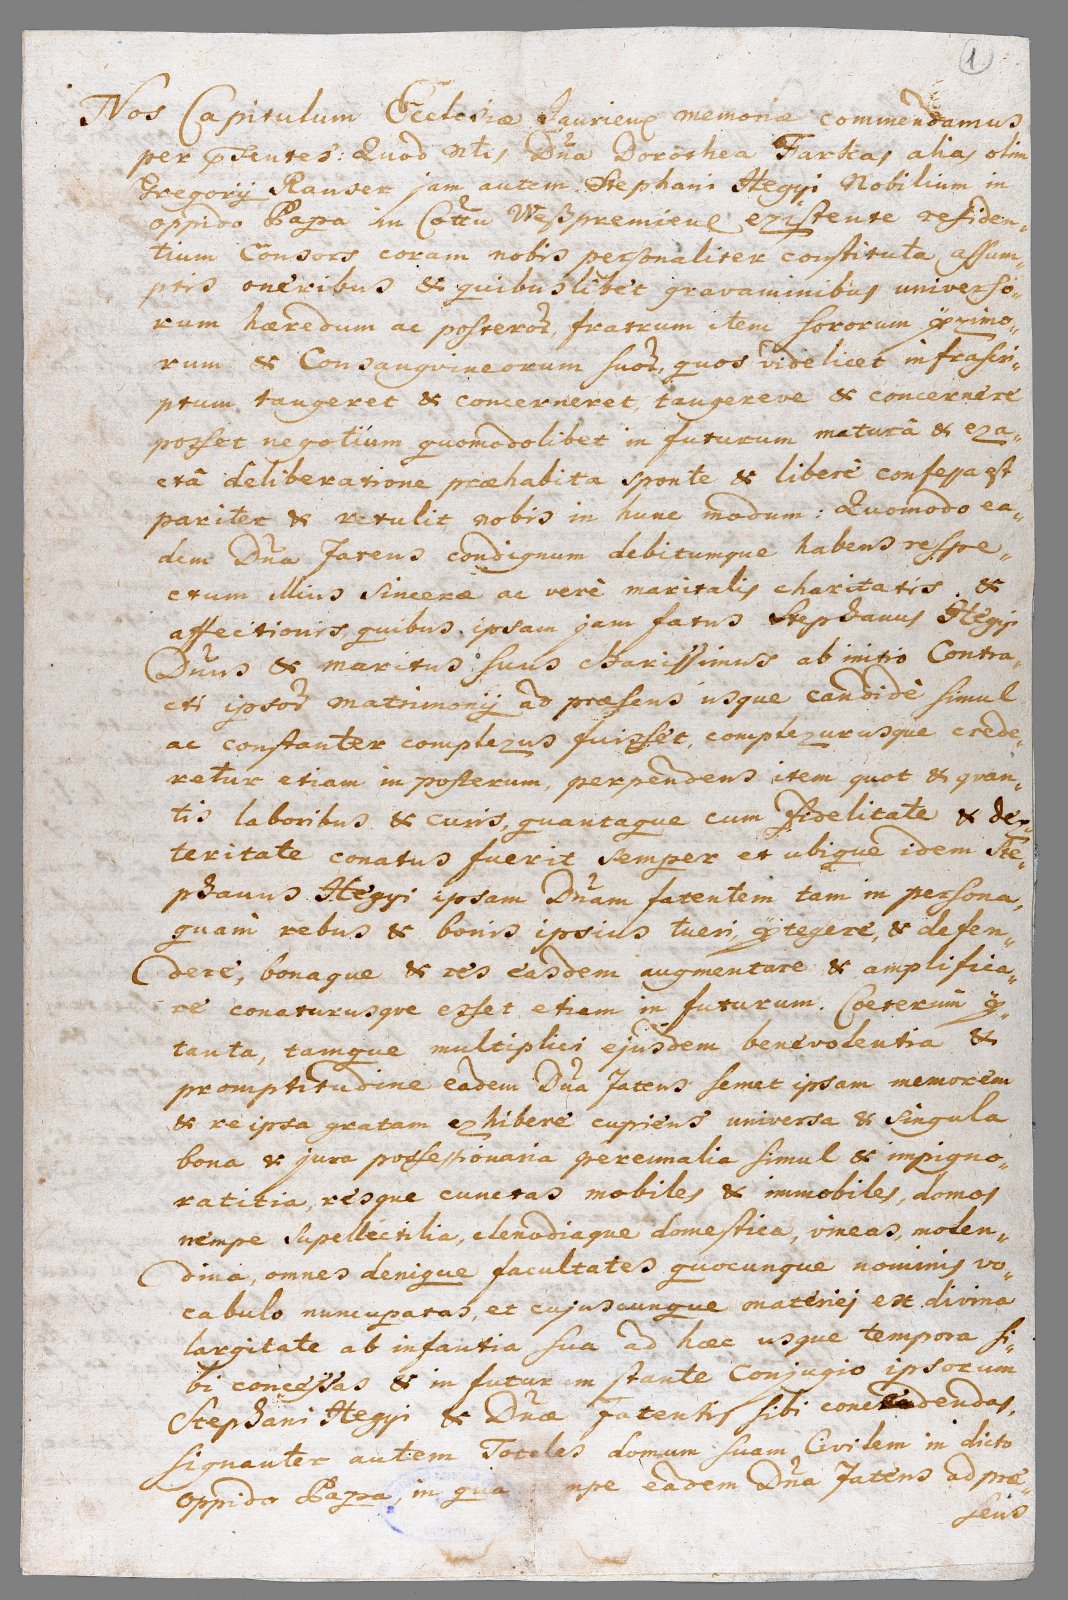 1
Nos Capitulum Ecclesiæ Jaurien memoriæ commendamus
per psentes: Quod Nblis Dna Dorothea Farkas alias olim
Gregorij Ranser jam autem Stephani Hegyi Nobilium in
oppido Papa in Cottu Weßpremien existente residen„
tium Consors coram nobis personaliter constituta, assum„
ptis oneribus & quibuslibet gravaminibus universo„
rum hæredum ac posteror, fratrum item sororum proximo„
rum & Consangvineorum suor, quos videlicet infrascri„
ptum tangeret & concerneret, tangereve & concernere
posset negotium quomodolibet in futurum maturâ & exa„
ctâ deliberatione præhabita sponte & liberè confessa est
pariter & retulit nobis in hunc modum: Quomodo ea„
dem Dna Fatens condignum debitumque habens respe„
ctum illius sinceræ ac verè maritalis charitatis &
affectionis, quibus ipsam jam fatus Stephanus Hegyi
Dnus & maritus suus charissimus ab initio Contra„
cti ipsor matrimonij ad præsens usque candidè simul
ac constanter complexus fuisset, complexurusque crede„
retur etiam in posterum, perpendens item quot & quan„
tis laboribus & curis, quantaque cum fidelitate & dex„
teritate conatus fuerit semper et ubique idem Ste„
phanus Hegyi ipsam Dnam fatentem tam in persona,
quàm rebus & bonis ipsius tueri, protegere, & defen„
dere, bonaque & res easdem augmentare & amplifica„
re conaturusque esset etiam in futurum. Coeterùm pro
tanta, tamque multiplici ejusdem benevolentia &
promptitudine eadem Dna Fatens semet ipsam memorem
& re ipsa gratam exhibere cupiens universa & singula
bona & jura possessionaria perennalia simul & impigno„
ratitia, resque cunctas mobiles & immobiles, domos
nempe supellectilia, clenodiaque domestica, vineas, molen„
dina, omnes denique facultates quocunque nominis vo„
cabulo nuncupatas, et cujuscunque materiei ex divina
largitate ab infantia sua ad hæc usque tempora si„
bi concessas & in futurum stante Conjugio ipsorum
Stephani Hegyi & Dnæ Fatentis sibi concedendas,
signanter autem Totales domum suam Civilem in dicto
oppido Papa, in qua npe eadem Dna Fatens ad præ„
sens